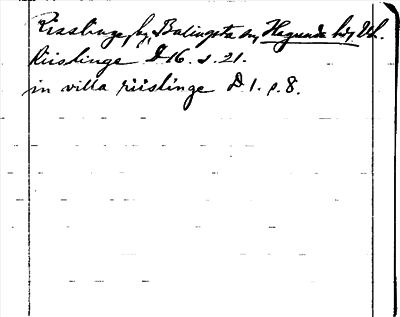 Risslinge, by, Balingsta sn, Hagunda hd, Upl.
Riislinge D 16. s. 21.
in villa riislinge D 1. p. 8.